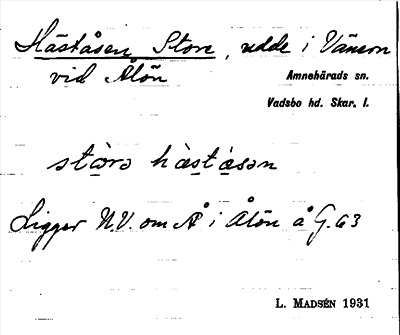 Håståsen, Store, udde i Vänern
vid Ålön
Amnehärads sn.
Vadsbo hd. Skar. l.
stòrə hàstàsən
Ligger N.V. om Å i Ålön å G. 63
L. MADSÉN 1931